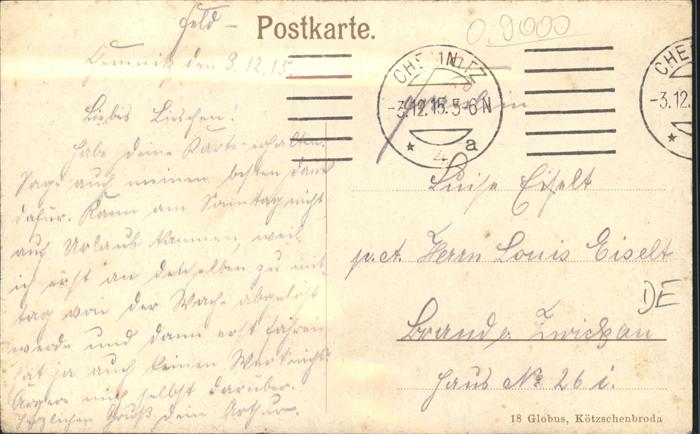 Feld-
Postkarte.
0.9000
Chemnitz den 3.12.15.
CHEMNITZ
-3.12.15.5-6N
* 4 a
CHE
-3.12.
*
Liebes Lieschen!
Habe deine Karte erhalten.
Sage auch meinen besten Dank
dafür. Kann am Sonntag nicht
auf Urlaub kommen, weil
ich erst an demselben zu mit-
tag von der Wache abgelöst
werde und dann erst fahren
hat ja auch keinen Wert nicht.
Ärgere mich selbst darüber.
Herzlichen Gruß dein Arthur.
Fräulein
Luise Eiselt
p. A. Herrn Louis Eiselt
DE
Brand b. Zwickau
Haus No 26 i.
18 Globus, Kötzschenbroda